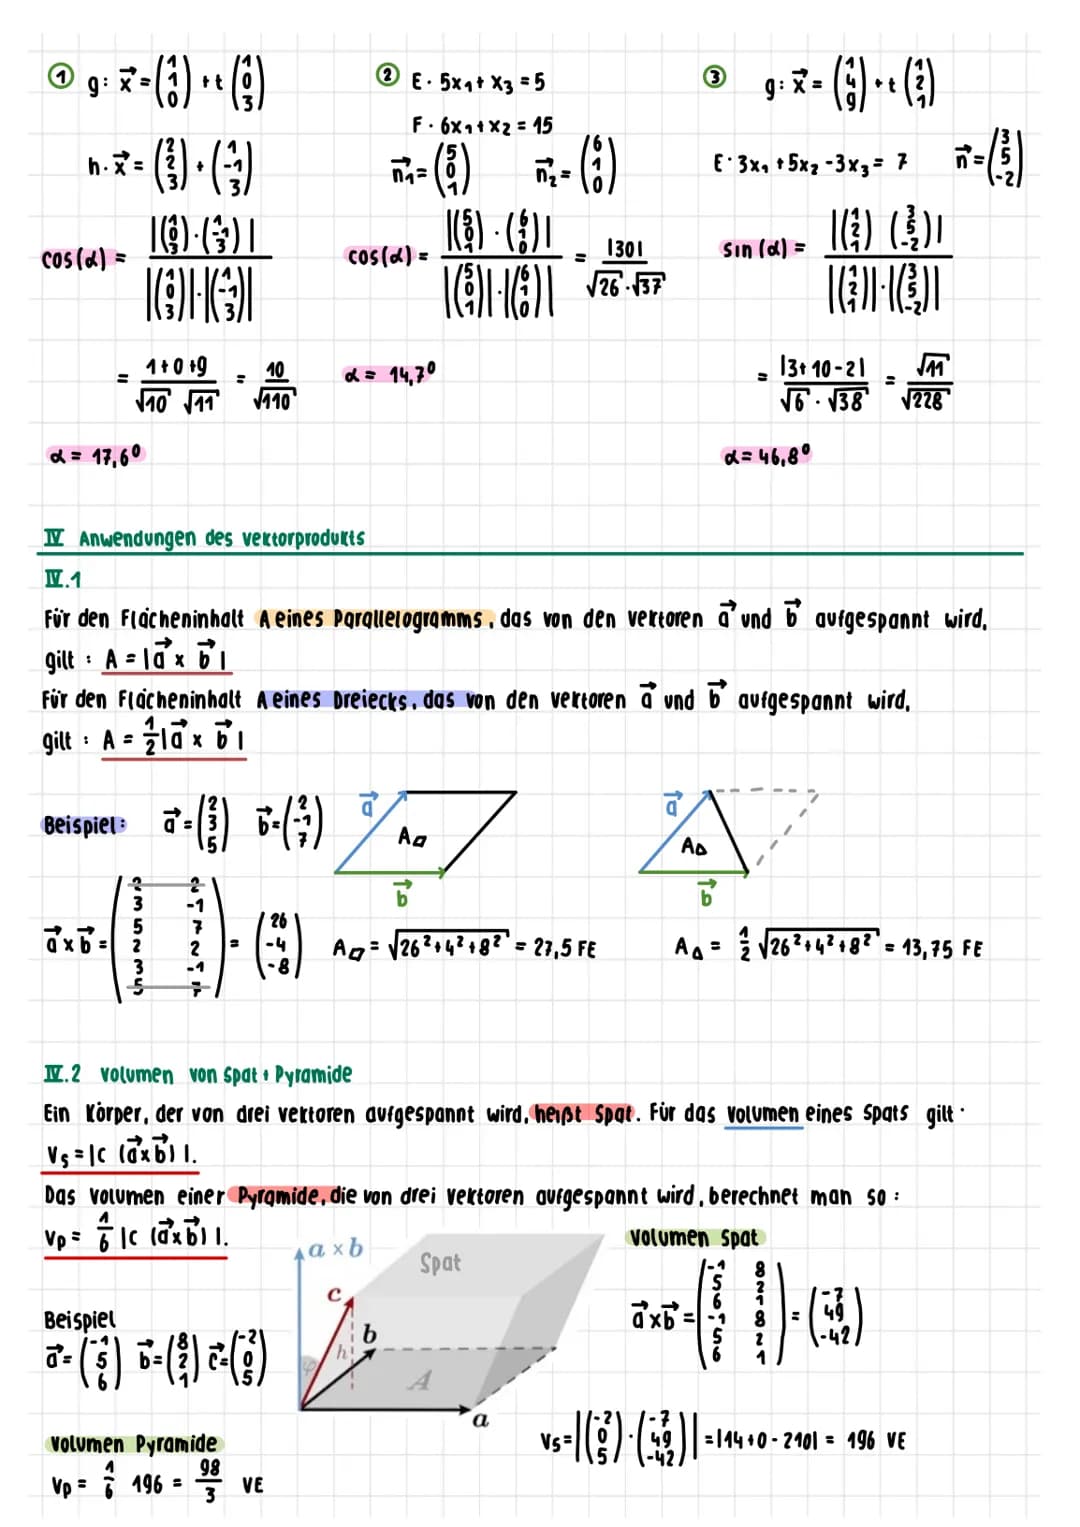 ① g: x⃗ = (1 1 0) + t (1 0 3)
h: x⃗ = (2 2 3) + (1 -1 3)
cos(α) = |(1 0 3)·(1 -1 3)| / |(1 0 3)|·|(1 -1 3)|
= 1+0+9 / √10 √11 = 10 / √110
α = 17,6°
② E: 5x₁ + x₃ = 5
F: 6x₁ + x₂ = 15
n⃗₁ = (5 0 1) n⃗₂ = (6 1 0)
cos(α) = |(5 0 1)·(6 1 0)| / |(5 0 1)|·|(6 1 0)| = |30| / √26·√37
α = 14,7°
③ g: x⃗ = (1 4 9) + t (1 2 1)
E: 3x₁ + 5x₂ - 3x₃ = 7 n⃗ = (3 5 -2)
sin(α) = |(1 2 1) (3 5 -2)| / |(1 2 1)|·|(3 5 -2)|
= |3+10-2| / √6·√38 = √11 / √228
α = 46,8°
IV Anwendungen des Vektorprodukts
IV.1
Für den Flächeninhalt A eines Parallelogramms, das von den Vektoren a⃗ und b⃗ aufgespannt wird,
gilt: A = |a⃗ x b⃗|
Für den Flächeninhalt A eines Dreiecks, das von den Vektoren a⃗ und b⃗ aufgespannt wird,
gilt: A = 1/2 |a⃗ x b⃗|
Beispiel: a⃗ = (2 3 5) b⃗ = (2 -1 7)
a⃗ A▱ b⃗
a⃗ A△ b⃗
a⃗ x b⃗ = (2 2 3 -1 5 7 2 2 3 -1 5 7) = (26 -4 -8) A▱ = √26²+4²+8² = 27,5 FE A△ = 1/2 √26²+4²+8² = 13,75 FE
IV.2 Volumen von Spat + Pyramide
Ein Körper, der von drei Vektoren aufgespannt wird, heißt Spat. Für das Volumen eines Spats gilt:
Vs = |c (a⃗xb⃗)|.
Das Volumen einer Pyramide, die von drei Vektoren aufgespannt wird, berechnet man so:
Vp = 1/6 |c (a⃗xb⃗)|.
Beispiel
a⃗ = (-1 5 6) b⃗ = (8 2 1) c⃗ = (-2 0 5)
Volumen Pyramide
Vp = 1/6 196 = 98/3 VE
a × b
Spat
c
b
h
φ
A
a
Volumen Spat
a⃗xb⃗ = (-1 8 5 2 6 1 -1 8 5 2 6 1) = (-7 49 -42)
Vs = |(-2 0 5)·(-7 49 -42)| = |14+0-210| = 196 VE